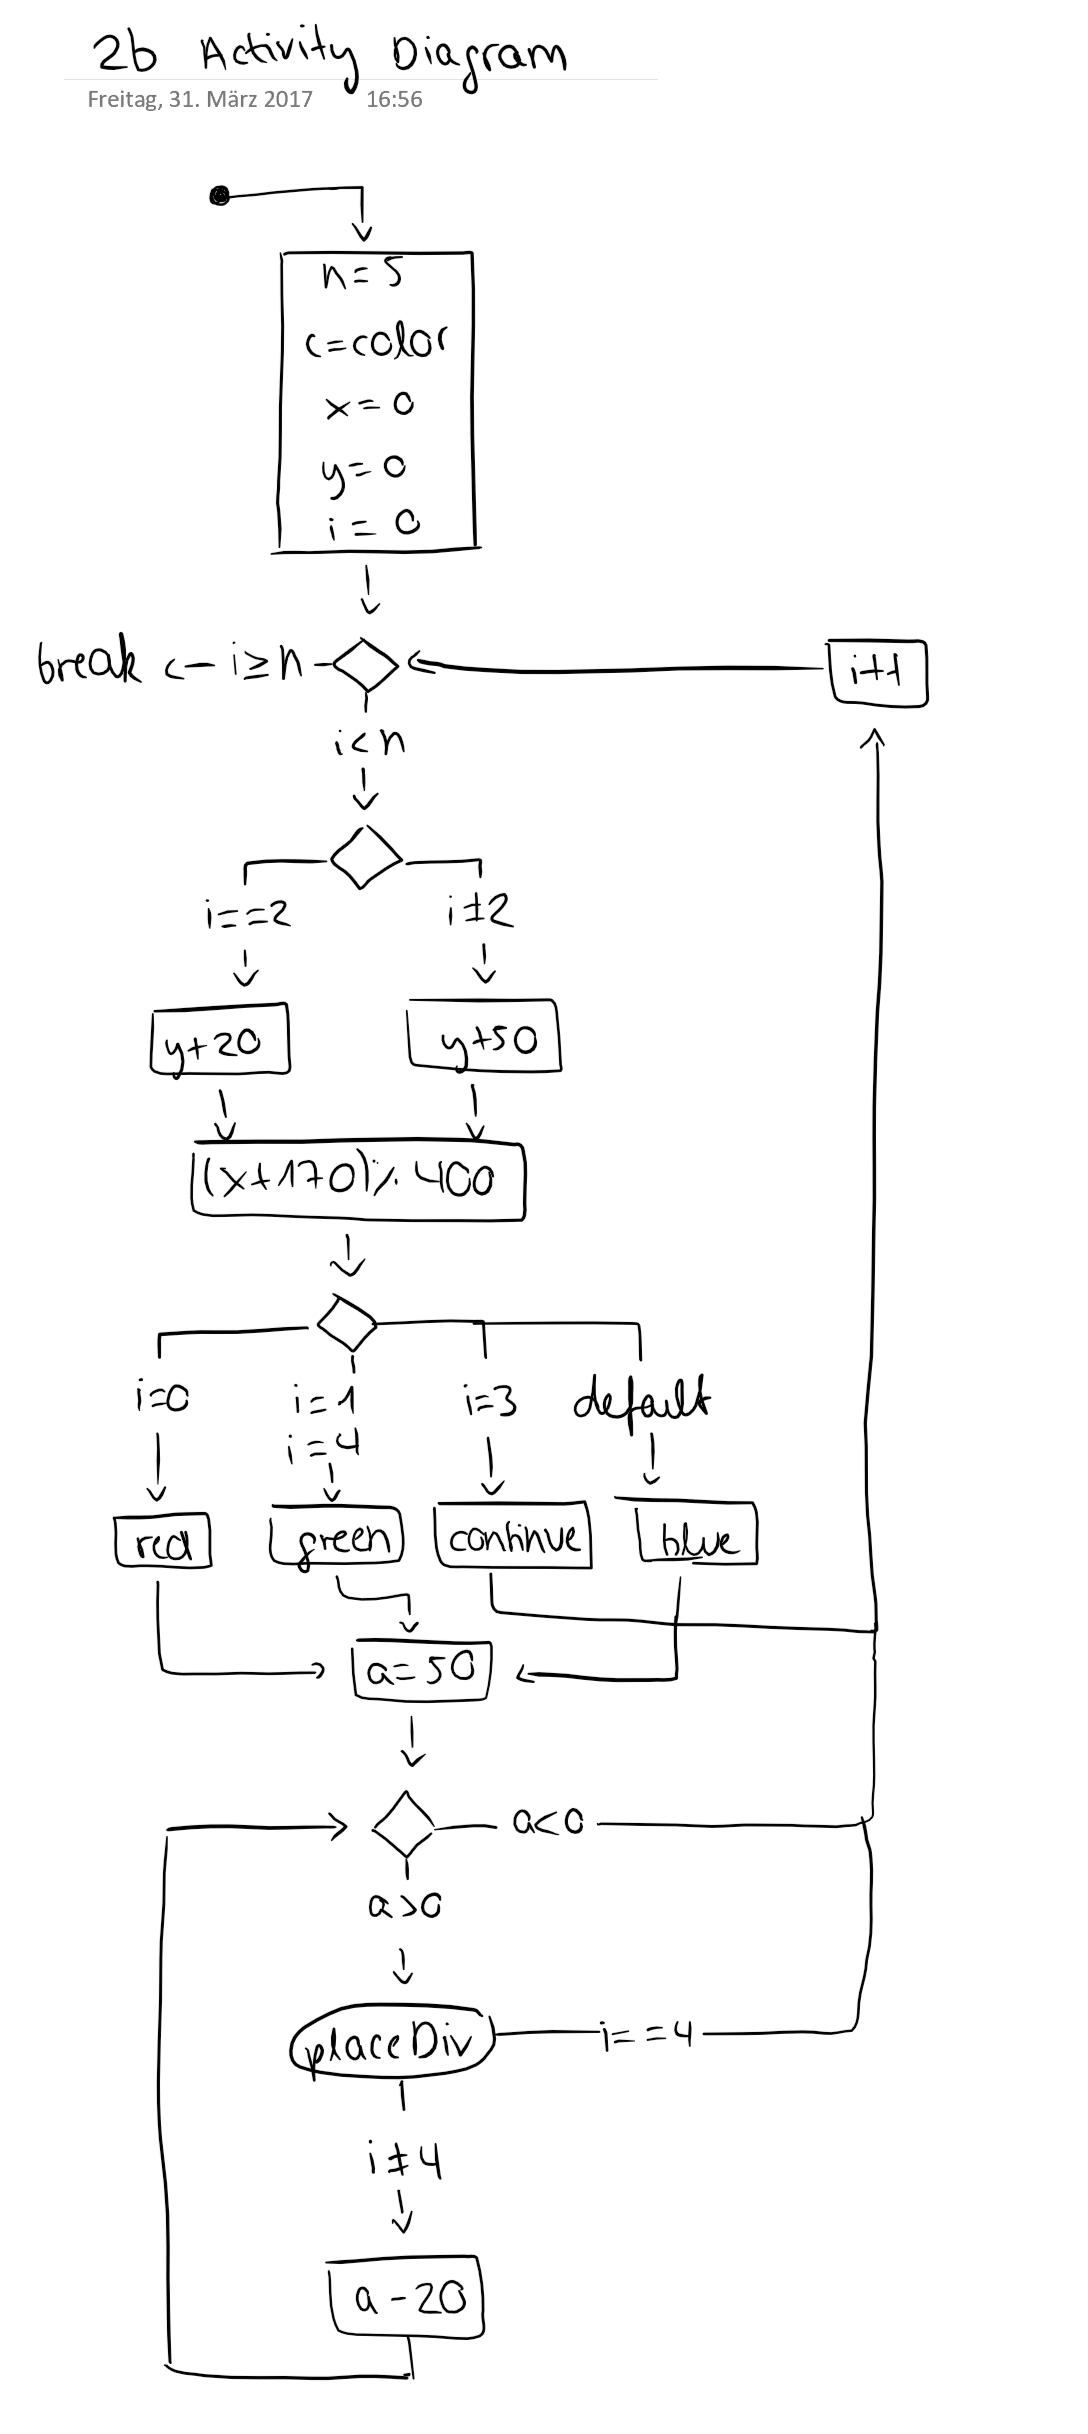 2b Activity Diagram
Freitag, 31. März 2017 16:56
n=5
c=color
x=0
y=0
i=0
break i≥n
i++
i<n
i==2 i≠2
y+20 y+50
(x+170)% 400
i=0 i=1 i=3 default
i=4
red green continue blue
a=50
a<0
a>0
placeDiv i==4
i≠4
a-20